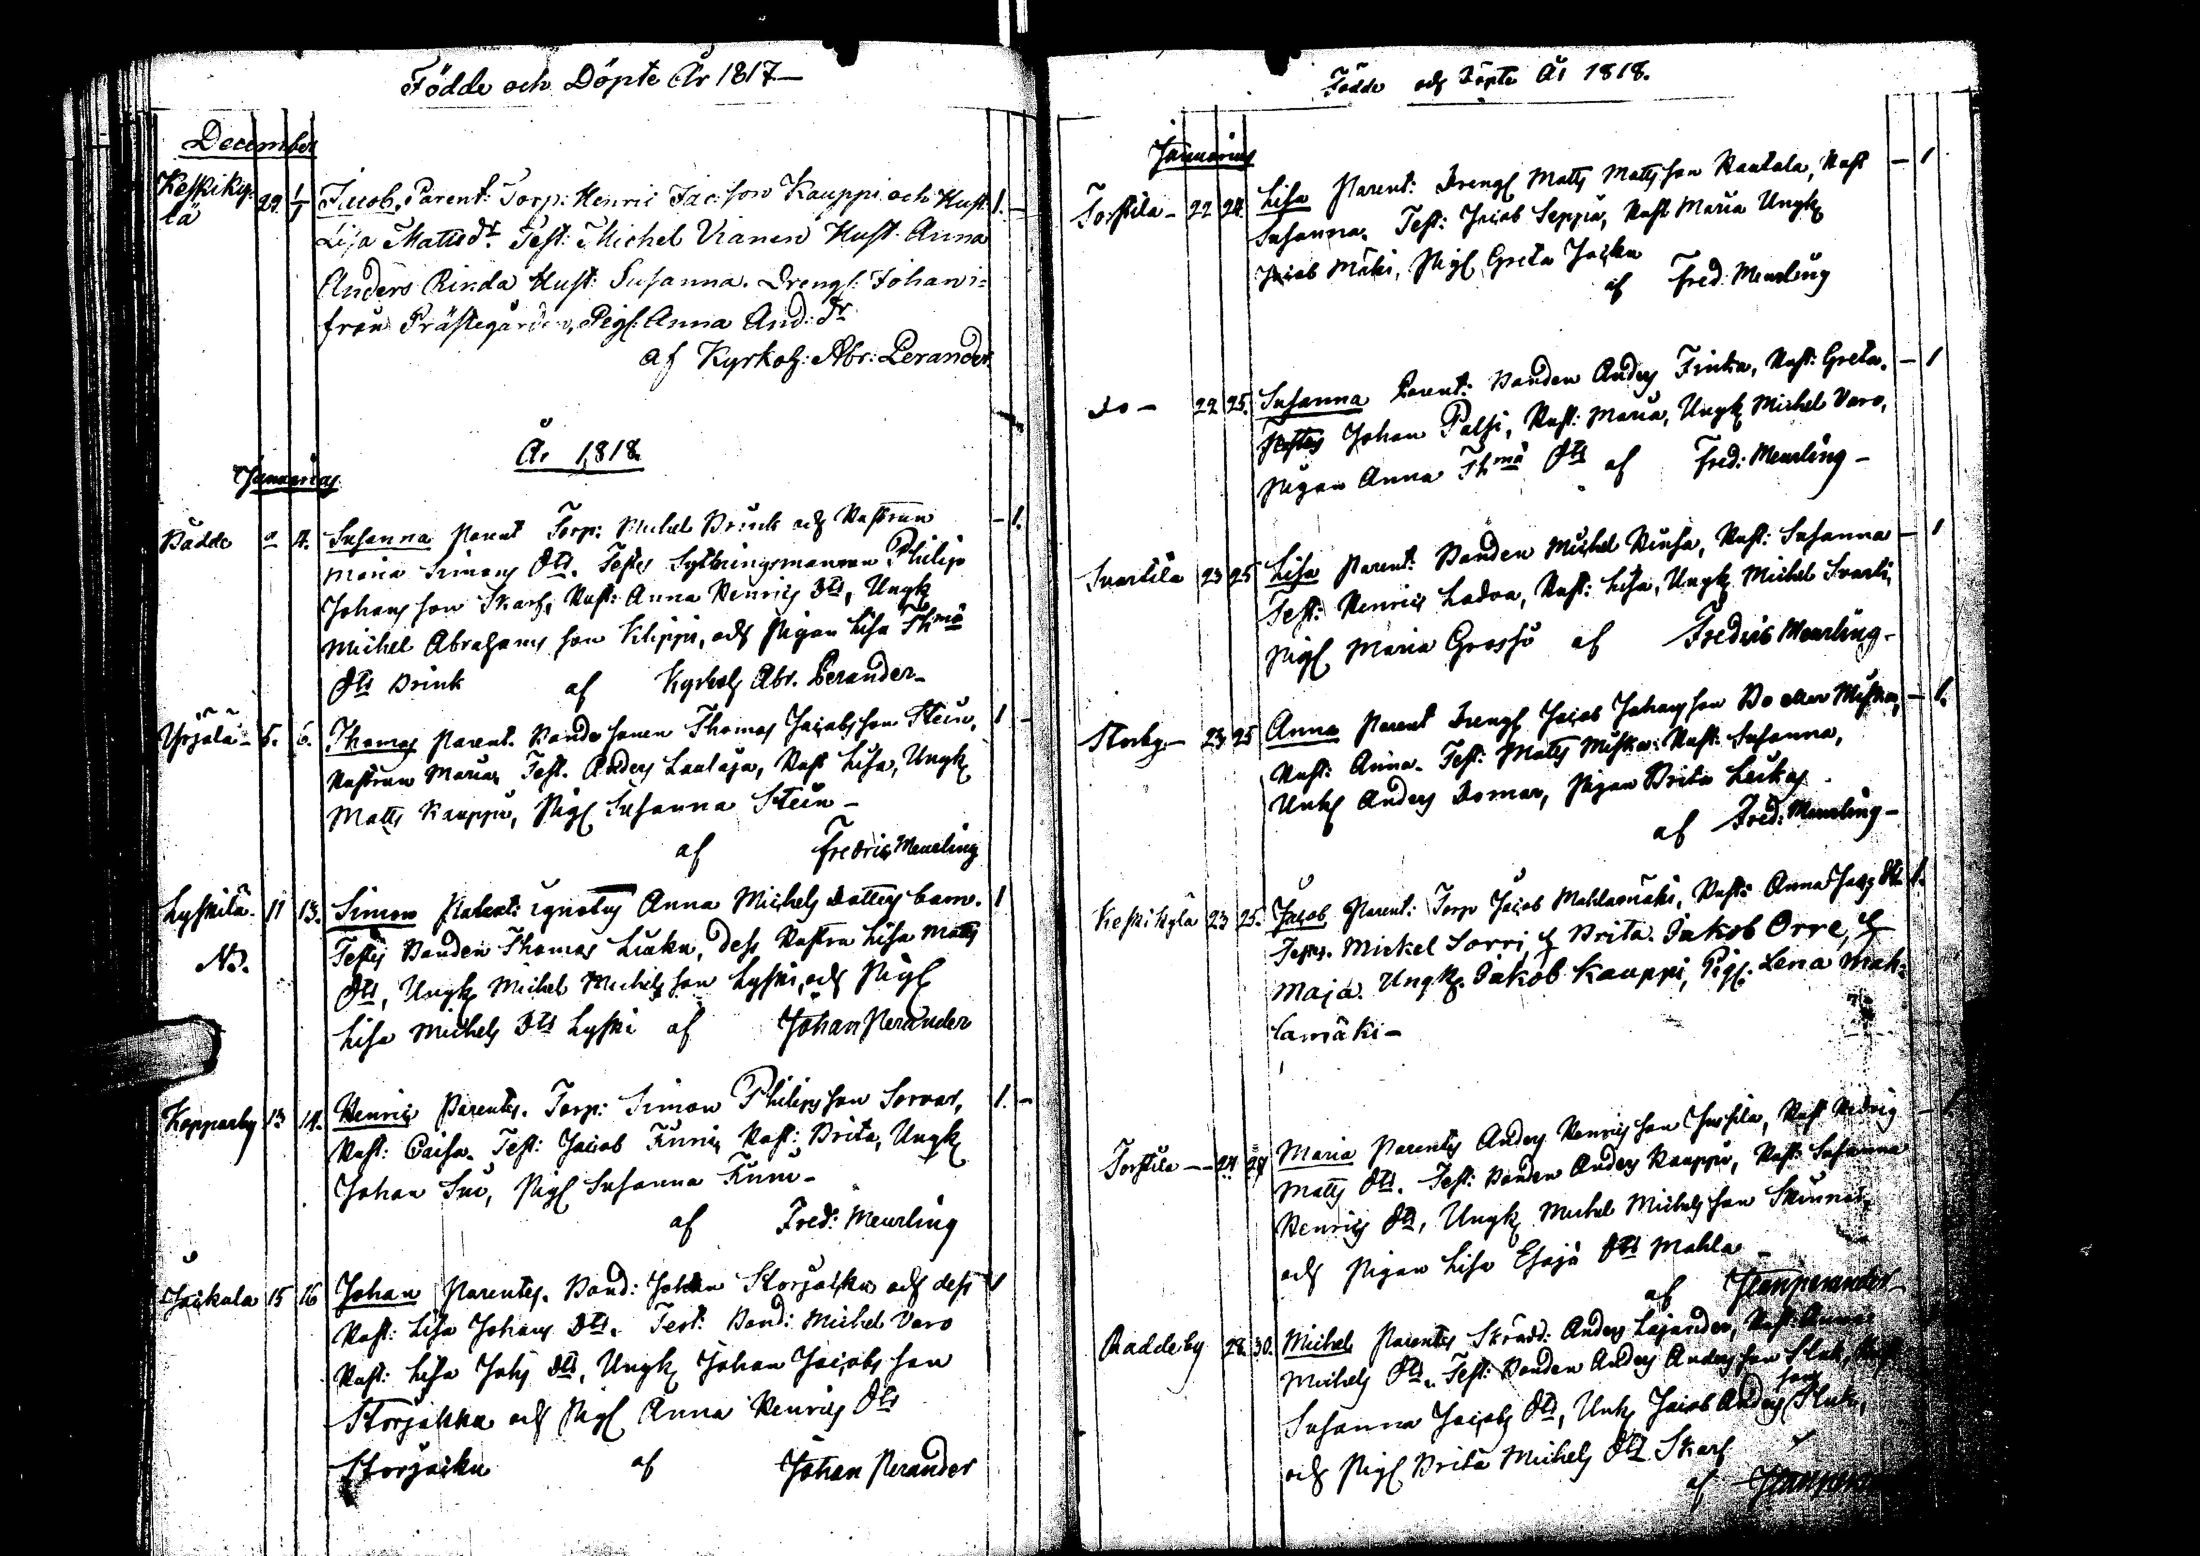 Födde och Döpte År 1817 —
December
Keskiky- 29. 1/1 Jacob, Parent: Torp: Henric Jac:son Kauppi och Hust: 1. —
lä Lisa Matts dr. Test: Michel Vianen Hust. Anna
Anders Rinda Hust: Susanna. Drengl: Johan i
från Prästegården, Pigl: Anna And: dr.
af Kyrkoh: Abr: Perander
År 1818.
Januarius
Rådde 4. Susanna Parent Torp: Michel Brink och Hustrun — 1.
Maria Simons Dtr. Testes Sythningsmannen Philip
Johans son Skarf, Hust: Anna Henrics Dtr, Ungk
Michel Abrahams son Klippi, och Pigan Lisa Thmæ
Dtr Brink af Kyrkoh Abr. Perander —
Yrjälä — 5. 6. Thomas Parent. Bondesonen Thomas Jacobsson Stein, 1 —
Hustrun Maria, Test. Anders Laulaja, Hust Lisa, Ungk
Matts Kauppi, Pigl Susanna Stein —
af Fredric Meurling
Lyskilä. 11 13. Simon Parent: ignotus Anna Michels dotters barn. 1
Testes Bonden Thomas Liuku, dess Hustru Lisa Matts
NB. Dtr, Ungk Michel Michelsson Lyski, och Pigl
Lisa Michels Dtr Lyski af Johan Perander
Kopparby 13 14. Henric Parentes. Torp: Simon Philips son Sorvar, 1. —
Hust: Caisa. Test: Jacob Kunni, Hust: Brita, Ungk
Johan Sui, Pigl Susanna Kunni —
af Fred: Meurling
Jäckala 15 16 Johan Parentes. Bond: Johan Storjakku och dess 1
Hust: Lisa Johans Dtr. Test: Bond: Michel Varo
Hust: Lisa Johs Dtr, Ungk Johan Jacobs son
Storjakku och Pigl Anna Henrics Dtr
Storjakku af Johan Perander
Födde och Döpte År 1818.
Januarius
Torstila — 22 24. Lisa Parent: Drengl Matts Matts son Rautala, Hust — 1
Susanna. Test: Jacob Seppä, Hust Maria Ungk
Jacob Mäki, Pigl Greta Jacku
af Fred: Meurling
Do — 22 25. Susanna Parent: Bonden Anders Finka, Hust: Greta. — 1
Testes Johan Palsi, Hust: Maria, Ungk Michel Varo,
Pigan Anna Thmæ Dtr af Fred: Meurling —
Svartila 23 25 Lisa Parent: Bonden Michel Kinsa, Hust: Susanna — 1
Test: Henric Ladva, Hust: Lisa, Ungk Michel Svarti,
Pigl Maria Grossi af Fredric Meurling —
Storby — 23 25 Anna Parent Drengl Jacob Johans son Miska, — 1.
Hust: Anna. Test: Matts Miska: Hust: Susanna,
Unk Anders Domar, Pigan Brita Leikas.
af Fred: Meurling —
Keskikylä 23 25. Jacob Parent: Torp Jacob Mahlamäki, Hust: Anna Jacs Dtr 1.
Testes. Mickel Sorri & Brita. Jakob Orre, &
Maja. Ungk. Jakob Kauppi, Pigl. Lena Mah-
lamäki —
Torstila — 24 27 Maria Parentes Anders Henrics son Jussila, Hust Hedvig — 1.
Matts Dtr. Test: Bonden Anders Kauppi, Hust: Susanna
Henrics Dtr, Ungk Michel Michels son Skinnar,
och Pigan Lisa Esaiæ Dtr Mahla —
af
Raddeby 28 30. Michel Parentes Skrädd: Anders Lajander, Hust: Anna
Michels Dtr. Test: Bonden Anders Anders son Sluk,
Susanna Jacobs Dtr, Unk Jacob Anders son Sluk,
och Pigl Brita Michels Dtr Skarf
af